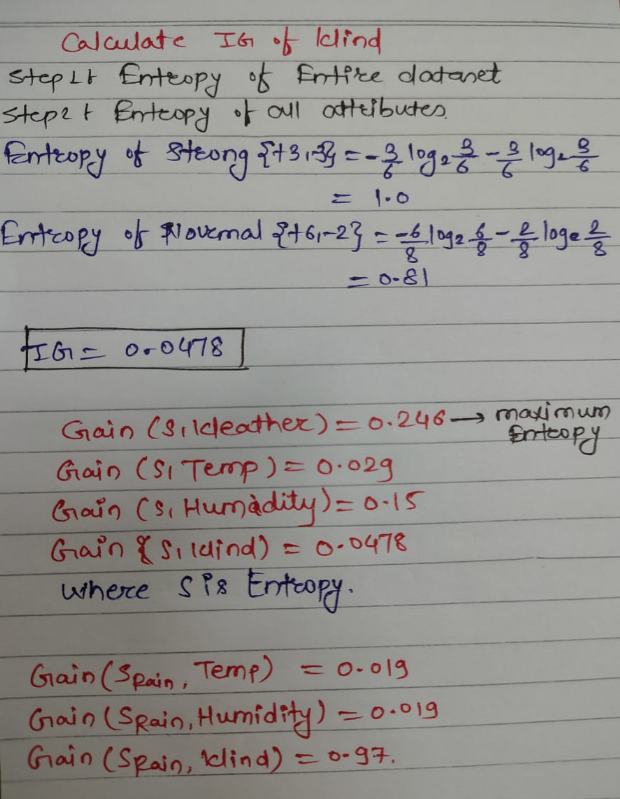 Calculate IG of Wind
Step 1: Entropy of Entire dataset
Step 2: Entropy of all attributes
Entropy of Strong {+3,-3} = -3/6 log2 3/6 - 3/6 log2 3/6
= 1.0
Entropy of Novermal {+6,-2} = -6/8 log2 6/8 - 2/8 log2 2/8
= 0.81
IG = 0.0478
Gain (S, Weather) = 0.246 → maximum
Entropy
Gain (S, Temp) = 0.029
Gain (S, Humidity) = 0.15
Gain (S, Wind) = 0.0478
where S is Entropy.
Gain (SRain, Temp) = 0.019
Gain (SRain, Humidity) = 0.019
Gain (SRain, Wind) = 0.97.